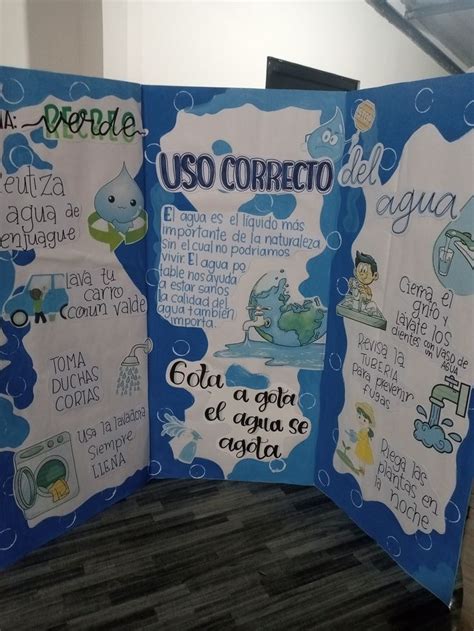 MA: RECREO
verde
Reutiza
agua de
enjuague
lava tu
carro
con un valde
TOMA
DUCHAS
CORIAS
Usa la lavadora
siempre
LLENA
USO CORRECTO
El agua es el líquido más
importante de la naturaleza
sin el cual no podriamos
vivir El agua po
table nos ayuda
a estar sanos
la calidad del
agua también
importa.
Gota a gota
el agua se
agota
del
agua
Cierra el
grifo y
lávate los
dientes con vaso de
un AGUA
Revisa la
TUBERIA
para prevenir
FUGAS
Riega las
plantas en
la noche